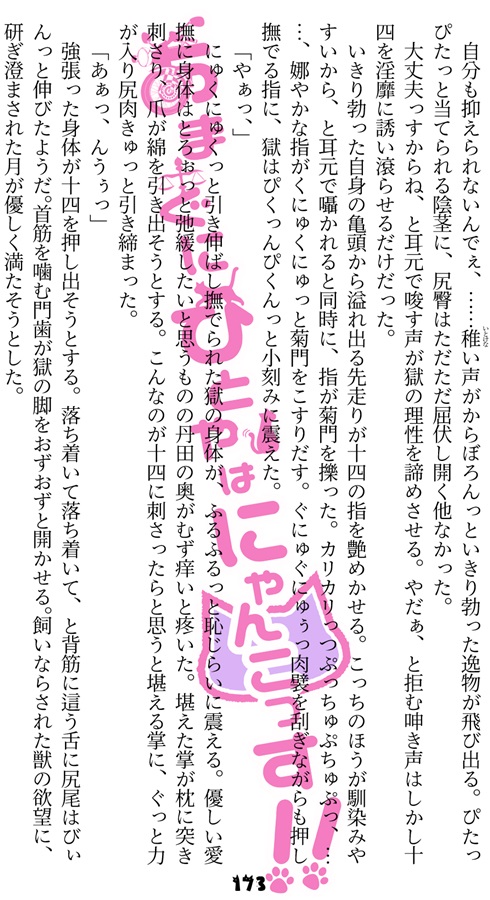 自分も抑えられないんでぇ、……稚い声がからぼろんっといきり勃った逸物が飛び出る。ぴたっ
いとけな
ぴたっと当てられる陰茎に、尻臀はただただ屈伏し開く他なかった。
大丈夫っすからね、と耳元で唆す声が獄の理性を諦めさせる。やだぁ、と拒む呻き声はしかし十
四を淫靡に誘い滾らせるだけだった。
いきり勃った自身の亀頭から溢れ出る先走りが十四の指を艶めかせる。こっちのほうが馴染みや
すいから、と耳元で囁かれると同時に、指が菊門を擽った。カリカリっつぷっちゅぷちゅぷっ、…
…、嫋やかな指がくにゅくにゅっと菊門をこすりだす。ぐにゅぐにゅぅっ肉襞を刮ぎながらも押し
撫でる指に、獄はぴくっんぴくんっと小刻みに震えた。
「やぁっ、」
にゅくにゅくっと引き伸ばし撫でられた獄の身体が、ふるふるっと恥じらいに震える。優しい愛
撫に身体はとろぉっと弛緩したいと思うものの丹田の奥がむず痒いと疼いた。堪えた掌が枕に突き
刺さり、爪が綿を引き出そうとする。こんなのが十四に刺さったらと思うと堪える掌に、ぐっと力
が入り尻肉きゅっと引き締まった。
「あぁっ、んうぅっ」
強張った身体が十四を押し出そうとする。落ち着いて落ち着いて、と背筋に這う舌に尻尾はびぃ
んっと伸びたようだ。首筋を噛む門歯が獄の脚をおずおずと開かせる。飼いならされた獣の欲望に、
研ぎ澄まされた月が優しく満たそうとした。
ひとやはにゃんこっす!!
173